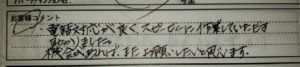 お客様コメント
電話対応が良く、スピーディーに作業していただき
助かりました。
機会があれば、またお願いしたいと思います。